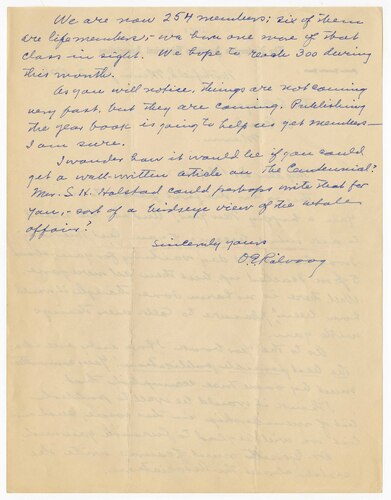 We are now 254 members; six of them
are life members, - we have one more of that
class in sight. We hope to reach 300 during
this month.
As you will notice, things are not coming
very fast, but they are coming. Publishing
the year book is going to help us get members —
I am sure.
I wonder how it would be if you could
get a well-written article on the Centennial?
Mrs. S. H. Holstad could perhaps write that for
you, - sort of a birdseye view of the whole
affair?
Sincerely yours
O. E. Rölvaag